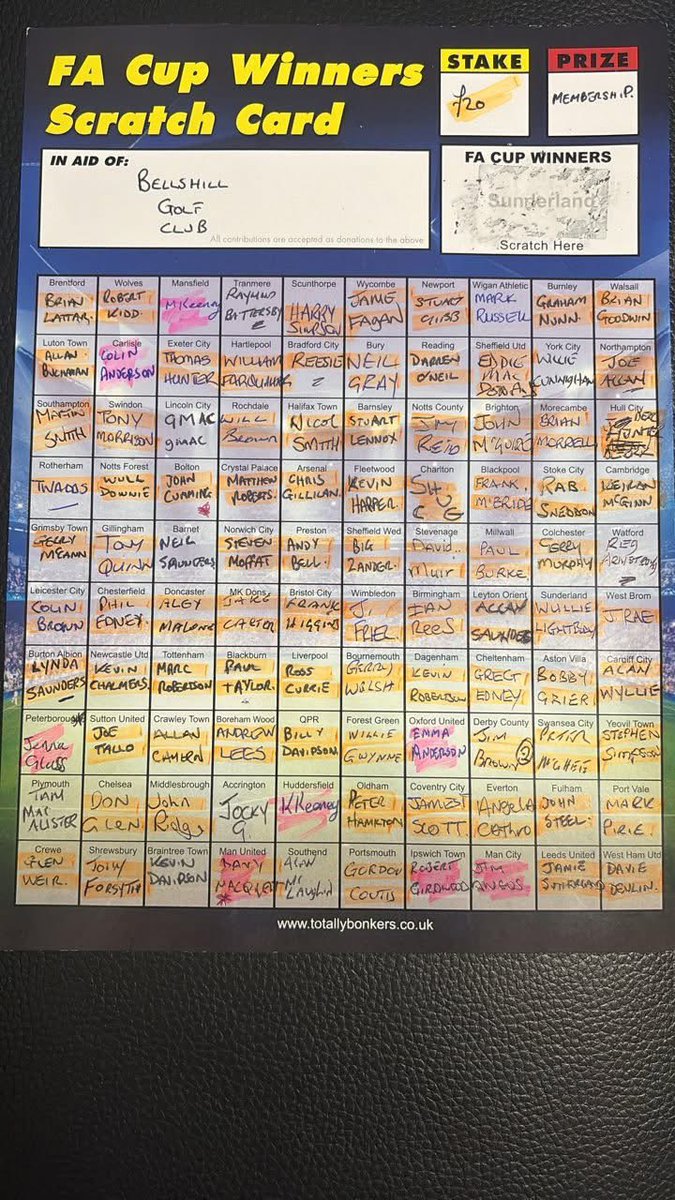 FA Cup Winners
Scratch Card
STAKE
£20
PRIZE
MEMBERSHIP.
IN AID OF:
BELLSHILL
GOLF
CLUB
All contributions are accepted as donations to the above
FA CUP WINNERS
Sunderland
Scratch Here
Brentford Wolves Mansfield Tranmere Scunthorpe Wycombe Newport Wigan Athletic Burnley Walsall
BRIAN ROBERT MKeeney RAYMOND HARRY JAMIE STUART MARK GRAHAM BRIAN
KIDD. BATTERSBY SIMPSON FAGAN GIBB RUSSELL NUNN. GOODWIN
Luton Town Carlisle Exeter City Hartlepool Bradford City Bury Reading Sheffield Utd York City Northampton
ALLAN COLIN THOMAS WILLIAM REESIE NEIL DARREN EDDIE WILLIE JOE
BUCHANAN ANDERSON HUNTER FARQUHAR 2 GRAY O'NEIL MAC CUNNINGHAM ALLAN
Southampton Swindon Lincoln City Rochdale Halifax Town Barnsley Notts County Brighton Morecambe Hull City
MARTIN TONY GMAC WILL NICOL STUART JIM JOHN BRIAN DEREK
SMITH MORRISON GMAC BROWN SMITH LENNOX REID McGUIRE MORRELL HUNTER
Rotherham Notts Forest Bolton Crystal Palace Arsenal Fleetwood Charlton Blackpool Stoke City Cambridge
TWADDS WULL JOHN MATTHEW CHRIS KEVIN FRANK RAB KEIRAN
DOWNIE CUMMING ROBERTS. GILLIGAN. HARPER. McBRIDE SNEDDON McGINN
Grimsby Town Gillingham Barnet Norwich City Preston Sheffield Wed Stevenage Millwall Colchester Watford
GERRY TONY NEIL STEVEN ANDY BIG DAVID PAUL GERRY REG
McCANN QUINN SAUNDERS MOFFAT BELL. ZANDER. MUIR BURKE. MURPHY ARMSTRONG
Leicester City Chesterfield Doncaster MK Dons Bristol City Wimbledon Birmingham Leyton Orient Sunderland West Brom
COLIN PHIL ALEY JAKE FRANK J. IAN ALLAN WULLIE J RAE
BROWN EDNEY. MALONE CARTER HIGGINS FRIEL REES SAUNDERS LIGHTBODY
Burton Albion Newcastle Utd Tottenham Blackburn Liverpool Bournemouth Dagenham Cheltenham Aston Villa Cardiff City
LYNDA KEVIN MARC PAUL ROSS GERRY KEVIN GREGT BOBBY ALAN
SAUNDERS CHALMERS. ROBERTSON TAYLOR. CURRIE WALSH ROBERTSON EDNEY GRIER WYLLIE
Peterborough Sutton United Crawley Town Boreham Wood QPR Forest Green Oxford United Derby County Swansea City Yeovil Town
Jenna JOE ALLAN ANDREW BILLY WILLIE EMMA JIM PETER STEPHEN
Glass TALLO CAMERN LEES DAVIDSON GWYNNE ANDERSON BROWN 2 McGHEE SIMPSON
Plymouth Chelsea Middlesbrough Accrington Huddersfield Oldham Coventry City Everton Fulham Port Vale
TAM DON John JOCKY KKeeney PETER JAMES ANGELA JOHN MARK
MAC GLEN G. HAMILTON SCOTT. STEEL. PIRIE.
ALISTER
Crewe Shrewsbury Braintree Town Man United Southend Portsmouth Ipswich Town Man City Leeds United West Ham Utd
GLEN JOHN KEVIN DANNY ALAN GORDON ROBERT JIM JAMIE DAVIE
WEIR. FORSYTH DAVIDSON Mc LAUGHLIN COUTTS GIRDWOOD ANGUS SUTHERLAND DEVLIN.
www.totallybonkers.co.uk